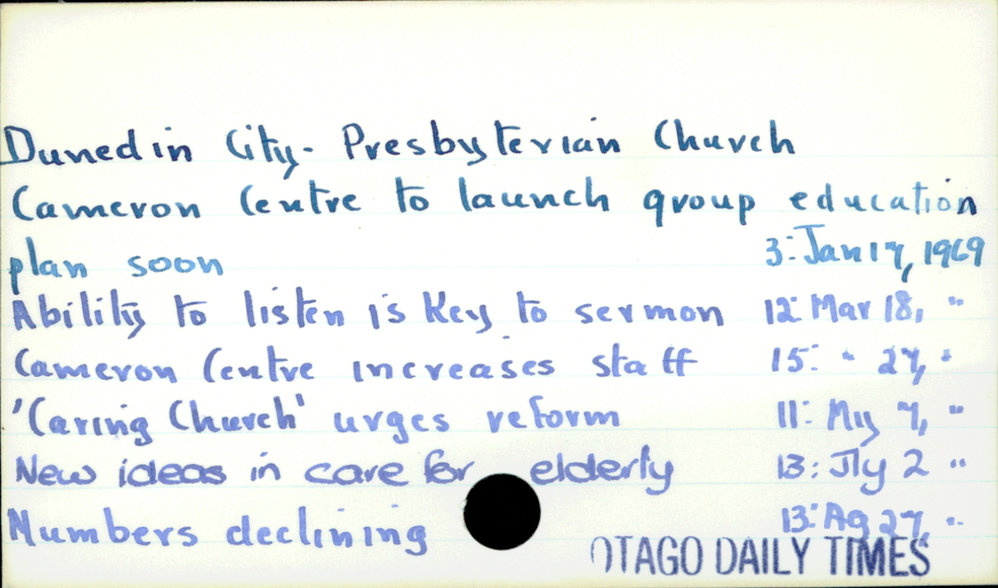 Dunedin City - Presbyterian Church
Cameron Centre to launch group education
plan soon 3: Jan 17, 1969
Ability to listen is Key to sermon 12: Mar 18, "
Cameron Centre increases staff 15: " 27, "
'Caring Church' urges reform 11: My 7, "
New ideas in care for elderly 13: Jly 2 "
Numbers declining 13: Ag 27, "
OTAGO DAILY TIMES